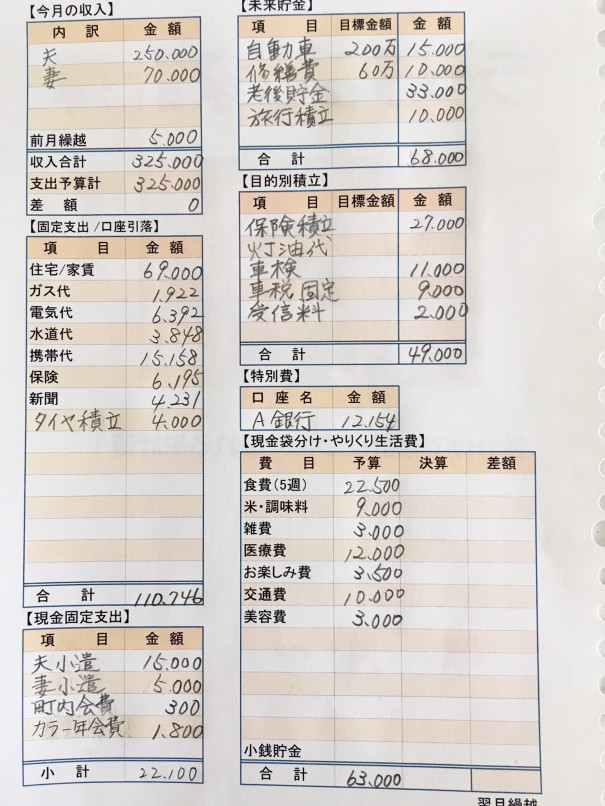 【今月の収入】
内 訳 金 額
夫 250.000
妻 70.000
前月繰越 5.000
収入合計 325.000
支出予算計 325.000
差 額 0
【固定支出/口座引落】
項 目 金 額
住宅/家賃 69.000
ガス代 1.922
電気代 6.392
水道代 3.848
携帯代 15.158
保険 6.195
新聞 4.231
タイヤ積立 4.000
合 計 110.746
【現金固定支出】
項 目 金 額
夫小遣 15.000
妻小遣 5.000
町内会費 300
カラー年会費 1.800
小 計 22.100
【未来貯金】
項 目 目標金額 金 額
自動車 200万 15.000
修繕費 60万 10.000
老後貯金 33.000
旅行積立 10.000
合 計 68.000
【目的別積立】
項 目 目標金額 金 額
保険積立 27.000
灯油代
車検 11.000
車税 固定 9.000
受信料 2.000
合 計 49.000
【特別費】
口 座 名 金 額
A銀行 12.154
【現金袋分け・やりくり生活費】
費 目 予算 決算 差額
食費(5週) 22.500
米・調味料 9.000
雑費 3.000
医療費 12.000
お楽しみ費 3.500
交通費 10.000
美容費 3.000
小銭貯金
合 計 63.000
翌月繰越